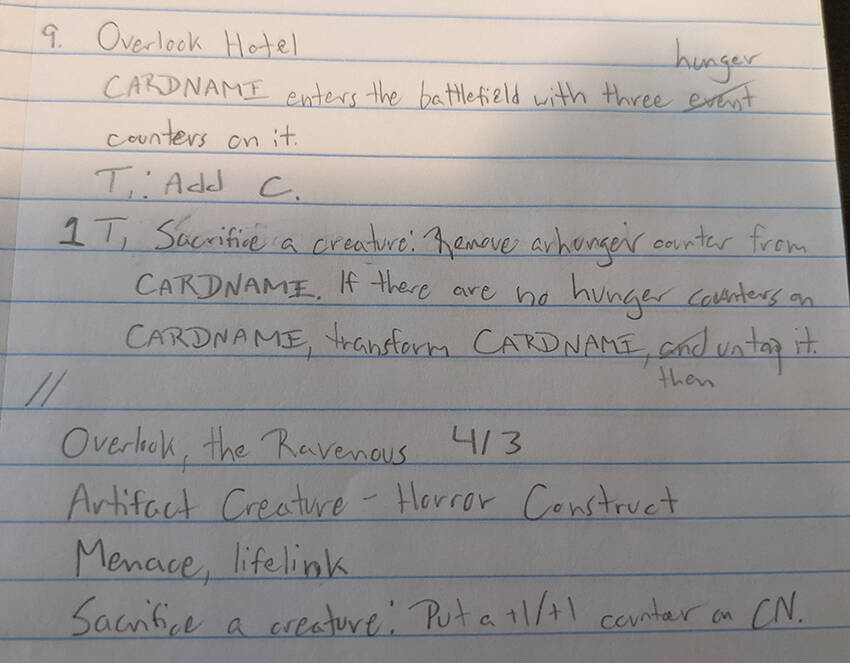 9. Overlook Hotel
hunger
CARDNAME enters the battlefield with three event
counters on it.
T,: Add C.
1 T, Sacrifice a creature: Remove a hunger counter from
CARDNAME. If there are no hunger counters on
CARDNAME, transform CARDNAME, and untap it.
then
//
Overlook, the Ravenous 4/3
Artifact Creature - Horror Construct
Menace, lifelink
Sacrifice a creature: Put a +1/+1 counter on CN.